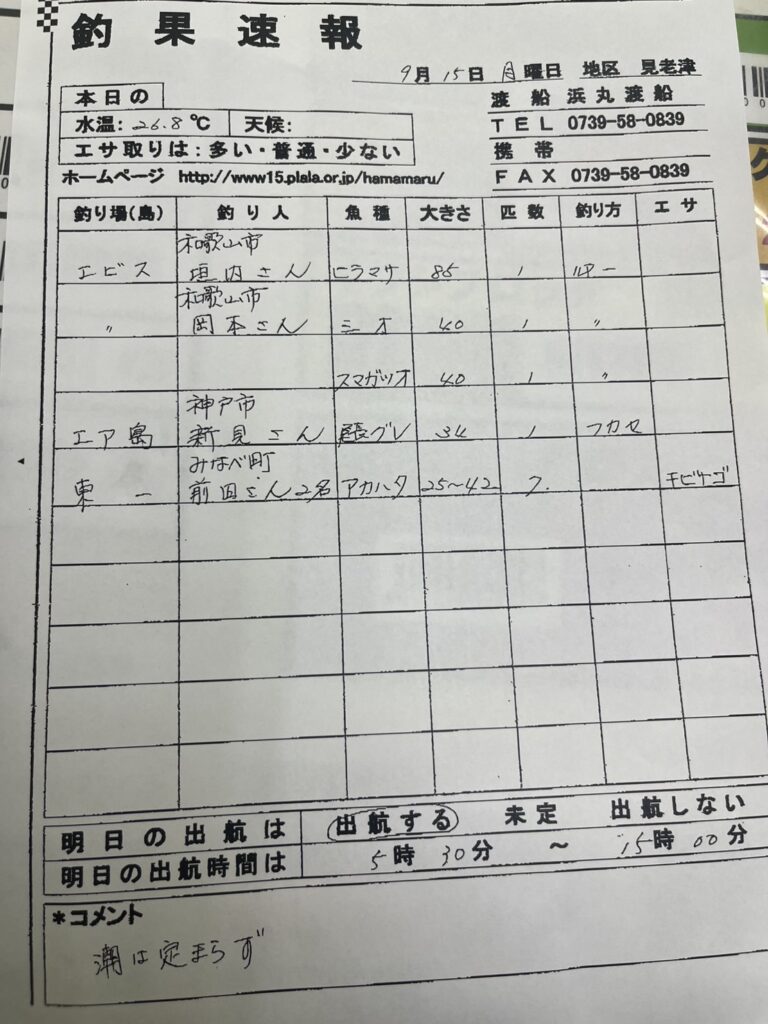 釣果速報
9月15日月曜日 地区 見老津
本日の
水温:26.8℃ 天候:
エサ取りは:多い・普通・少ない
渡船 浜丸渡船
TEL 0739-58-0839
携帯
FAX 0739-58-0839
ホームページ http://www15.plala.or.jp/hamamaru/
釣り場(島) 釣り人 魚種 大きさ 匹数 釣り方 エサ
和歌山市
エビス 垣内さん ヒラマサ 85 1 ルアー
和歌山市
〃 岡本さん シオ 40 1 〃
スマガツオ 40 1 〃
神戸市
エア島 新見さん 尾長グレ 34 1 フカセ
みなべ町
東一 前田さん2名 アカハタ 25~42 7 キビナゴ
明日の出航は 出航する 未定 出航しない
明日の出航時間は 5時30分 ~ 15時00分
*コメント
潮は定まらず